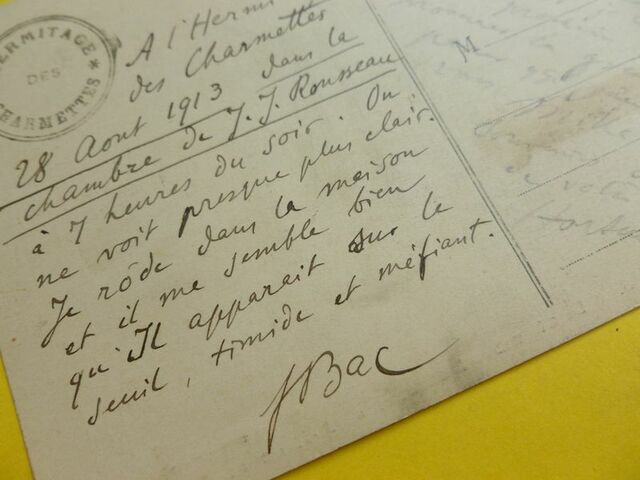 ERMITAGE
DES
CHARMETTES
A l'Hermi
des Charmettes
28 Aout 1913 dans la
chambre de J. J. Rousseau
à 7 heures du soir. On
ne voit presque plus clair.
Je rôde dans la maison
et il me semble bien
qu'Il apparait sur le
seuil, timide et méfiant.
FBac
M